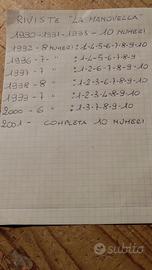 RIVISTE "LA MANOVELLA"
1990-1991-1993 - 10 NUMERI
1992 - 8 NUMERI : 1-4-5-6-7-8-9-10
1996 - 7 " : 1-4-5-6-7-8-9
1997 - 7 " : 1-2-6-7-8-9-10
1998 - 8 " : 1-2-3-6-7-8-9-10
1999 - 7 " : 1-2-3-4-8-9-10
2000 - 6 " : 1-3-7-8-9-10
2001 - COMPLETA 10 NUMERI
subito